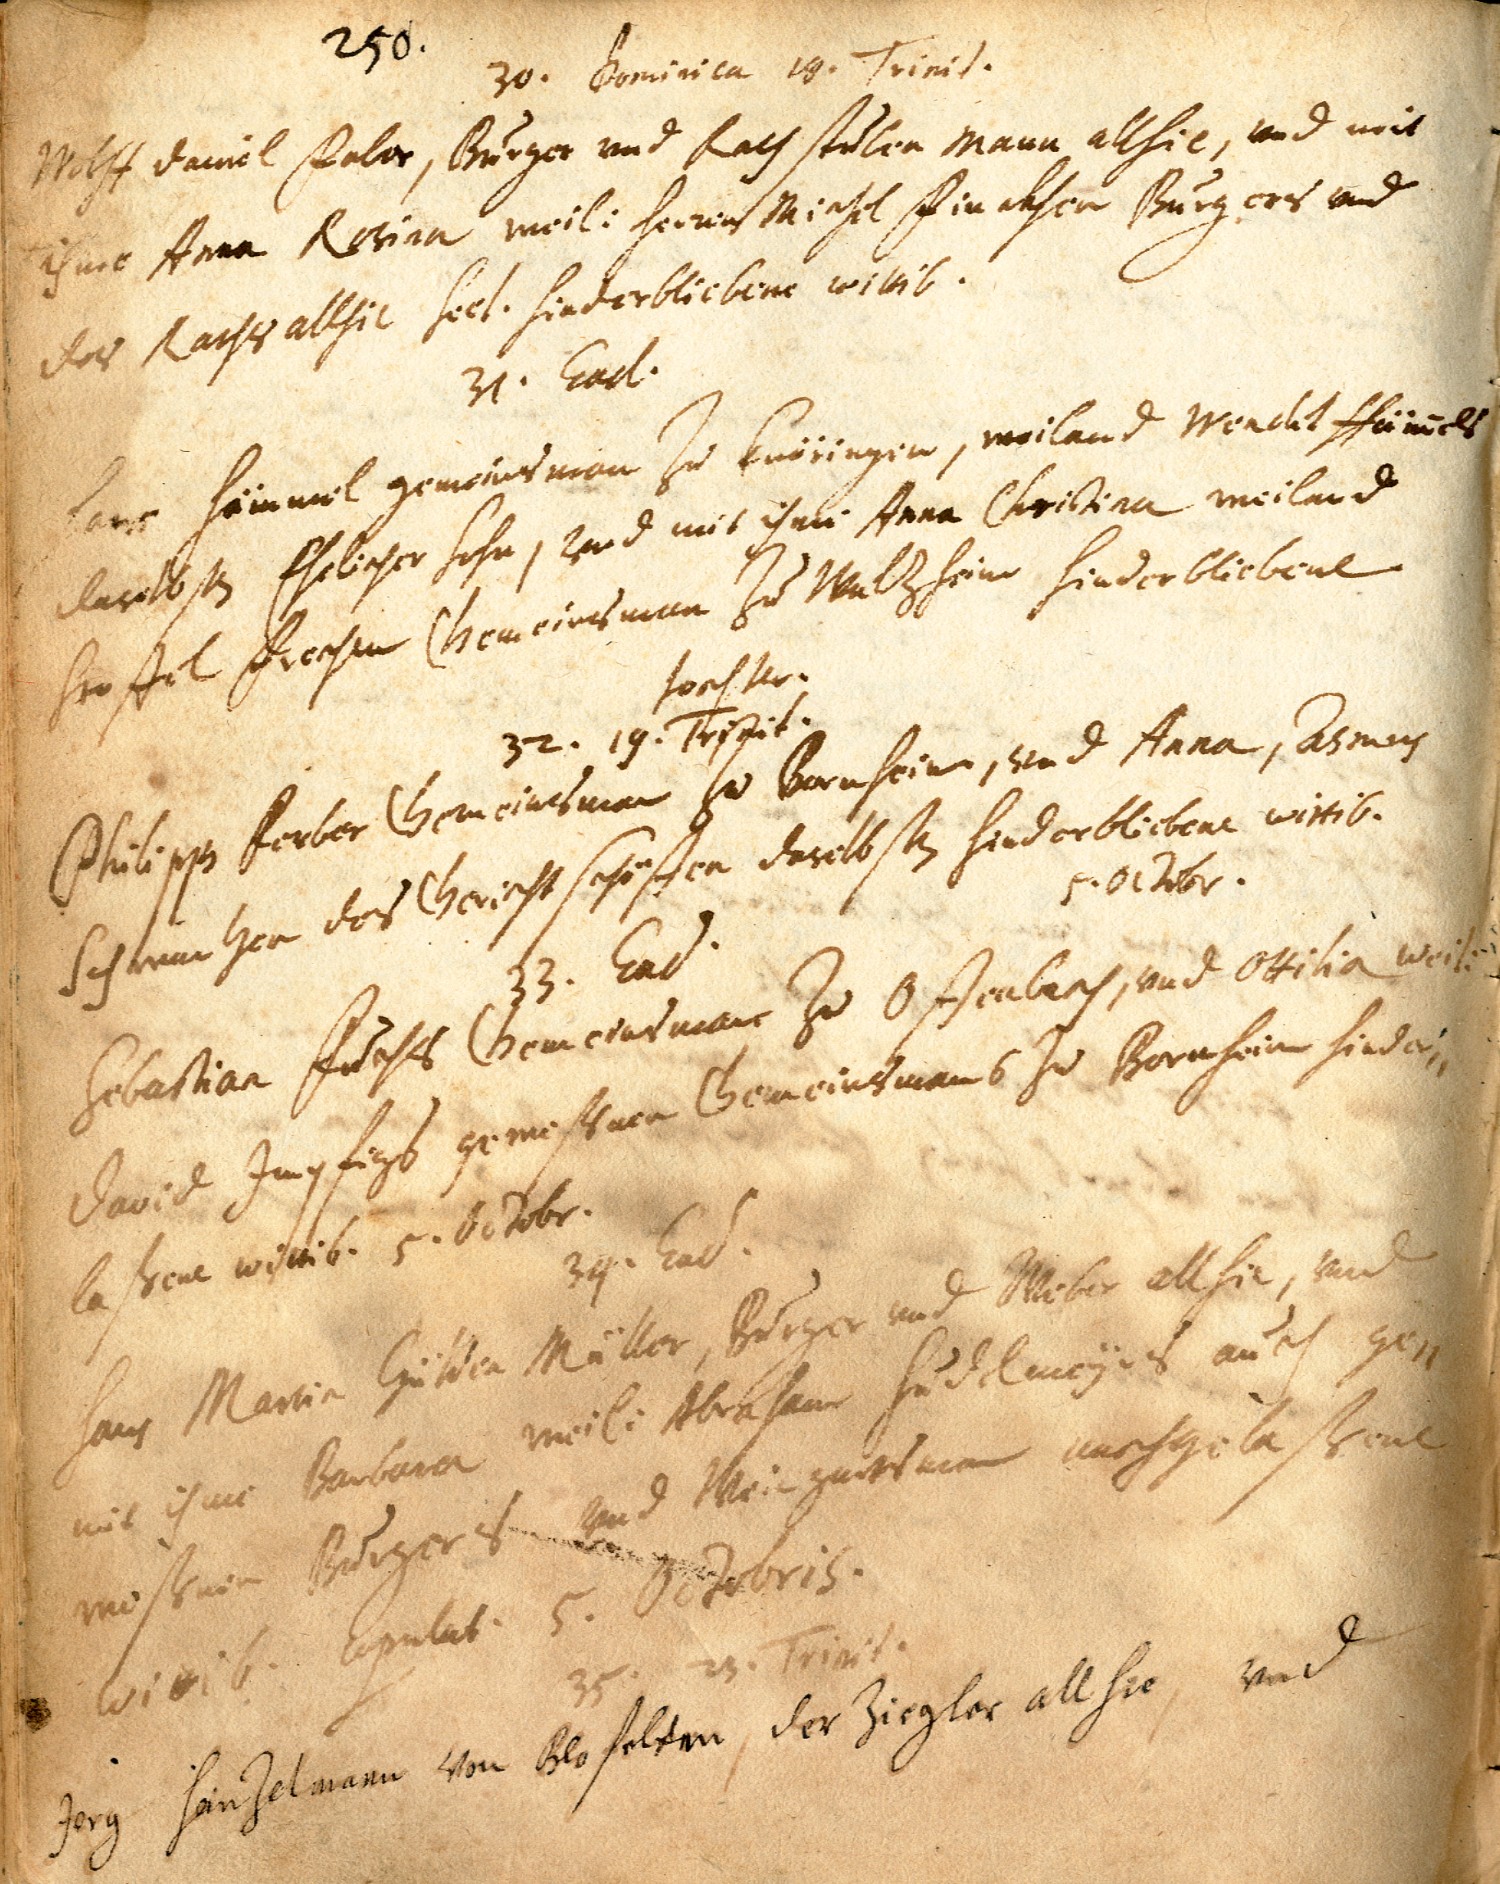 250.
30. Dominica 18. Trinit.
Wolff Daniel Falor, Burger und Rath stuben Mann allhie, und mit
ihme Anna Rosina weil: Herrn Michel Burgers und
des Raths allhie seel. hinderbliebene wittib.
31. Ead.
Hans Hämmel gemeinsman zu Knöringen, weiland Wendel Hämmels
daselbsten Ehelicher Sohn, und mit ihme Anna Christina weiland
Gemeinsman zu Waltzheim hinderbliebene
tochter.
32. 19. Trinit.
Philipps Ferber Gemeinsman zu Bornheim, und Anna, Asmus
des Gericht schöffen daselbsten hinderbliebene wittib.
5. Octobr.
33. Ead.
Sebastian Fuchs Gemeinsman zu Offenbach, und Ottilia weil:
David gewessnen Gemeinsmans zu Bornheim hinder
lassene wittib. 5. Octobr.
34. Ead.
Hans Martin Gülden Müller, Burger und Weber allhie, und
mit ihme Barbara weil: Abraham auch gew
wessnen Burgers und Weingartsman nachgelassene
wittib. copulat. 5. Octobris.
35. 23. Trinit.
Jerg Heinzelmann von Blofelden, der Ziegler allhie, und